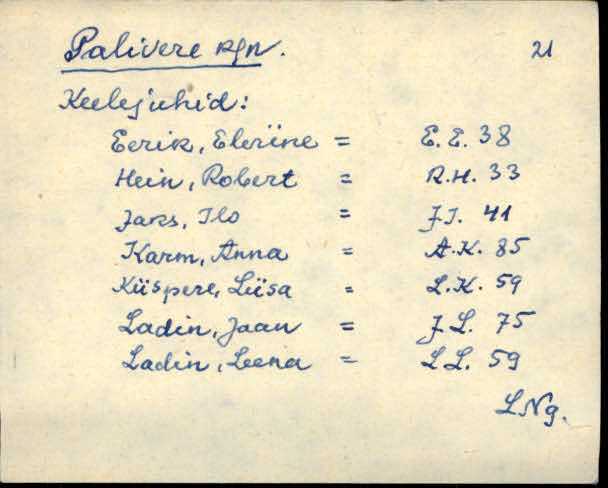 Palivere rjn. 21
Keelejuhid:
Eerik, Eleriine = E.E. 38
Hein, Robert = R.H. 33
Jaks, Ilo = J.I. 41
Karm, Anna = A.K. 85
Küspere, Liisa = L.K. 59
Ladin, Jaan = J.L. 75
Ladin, Leena = L.L. 59
LNg.